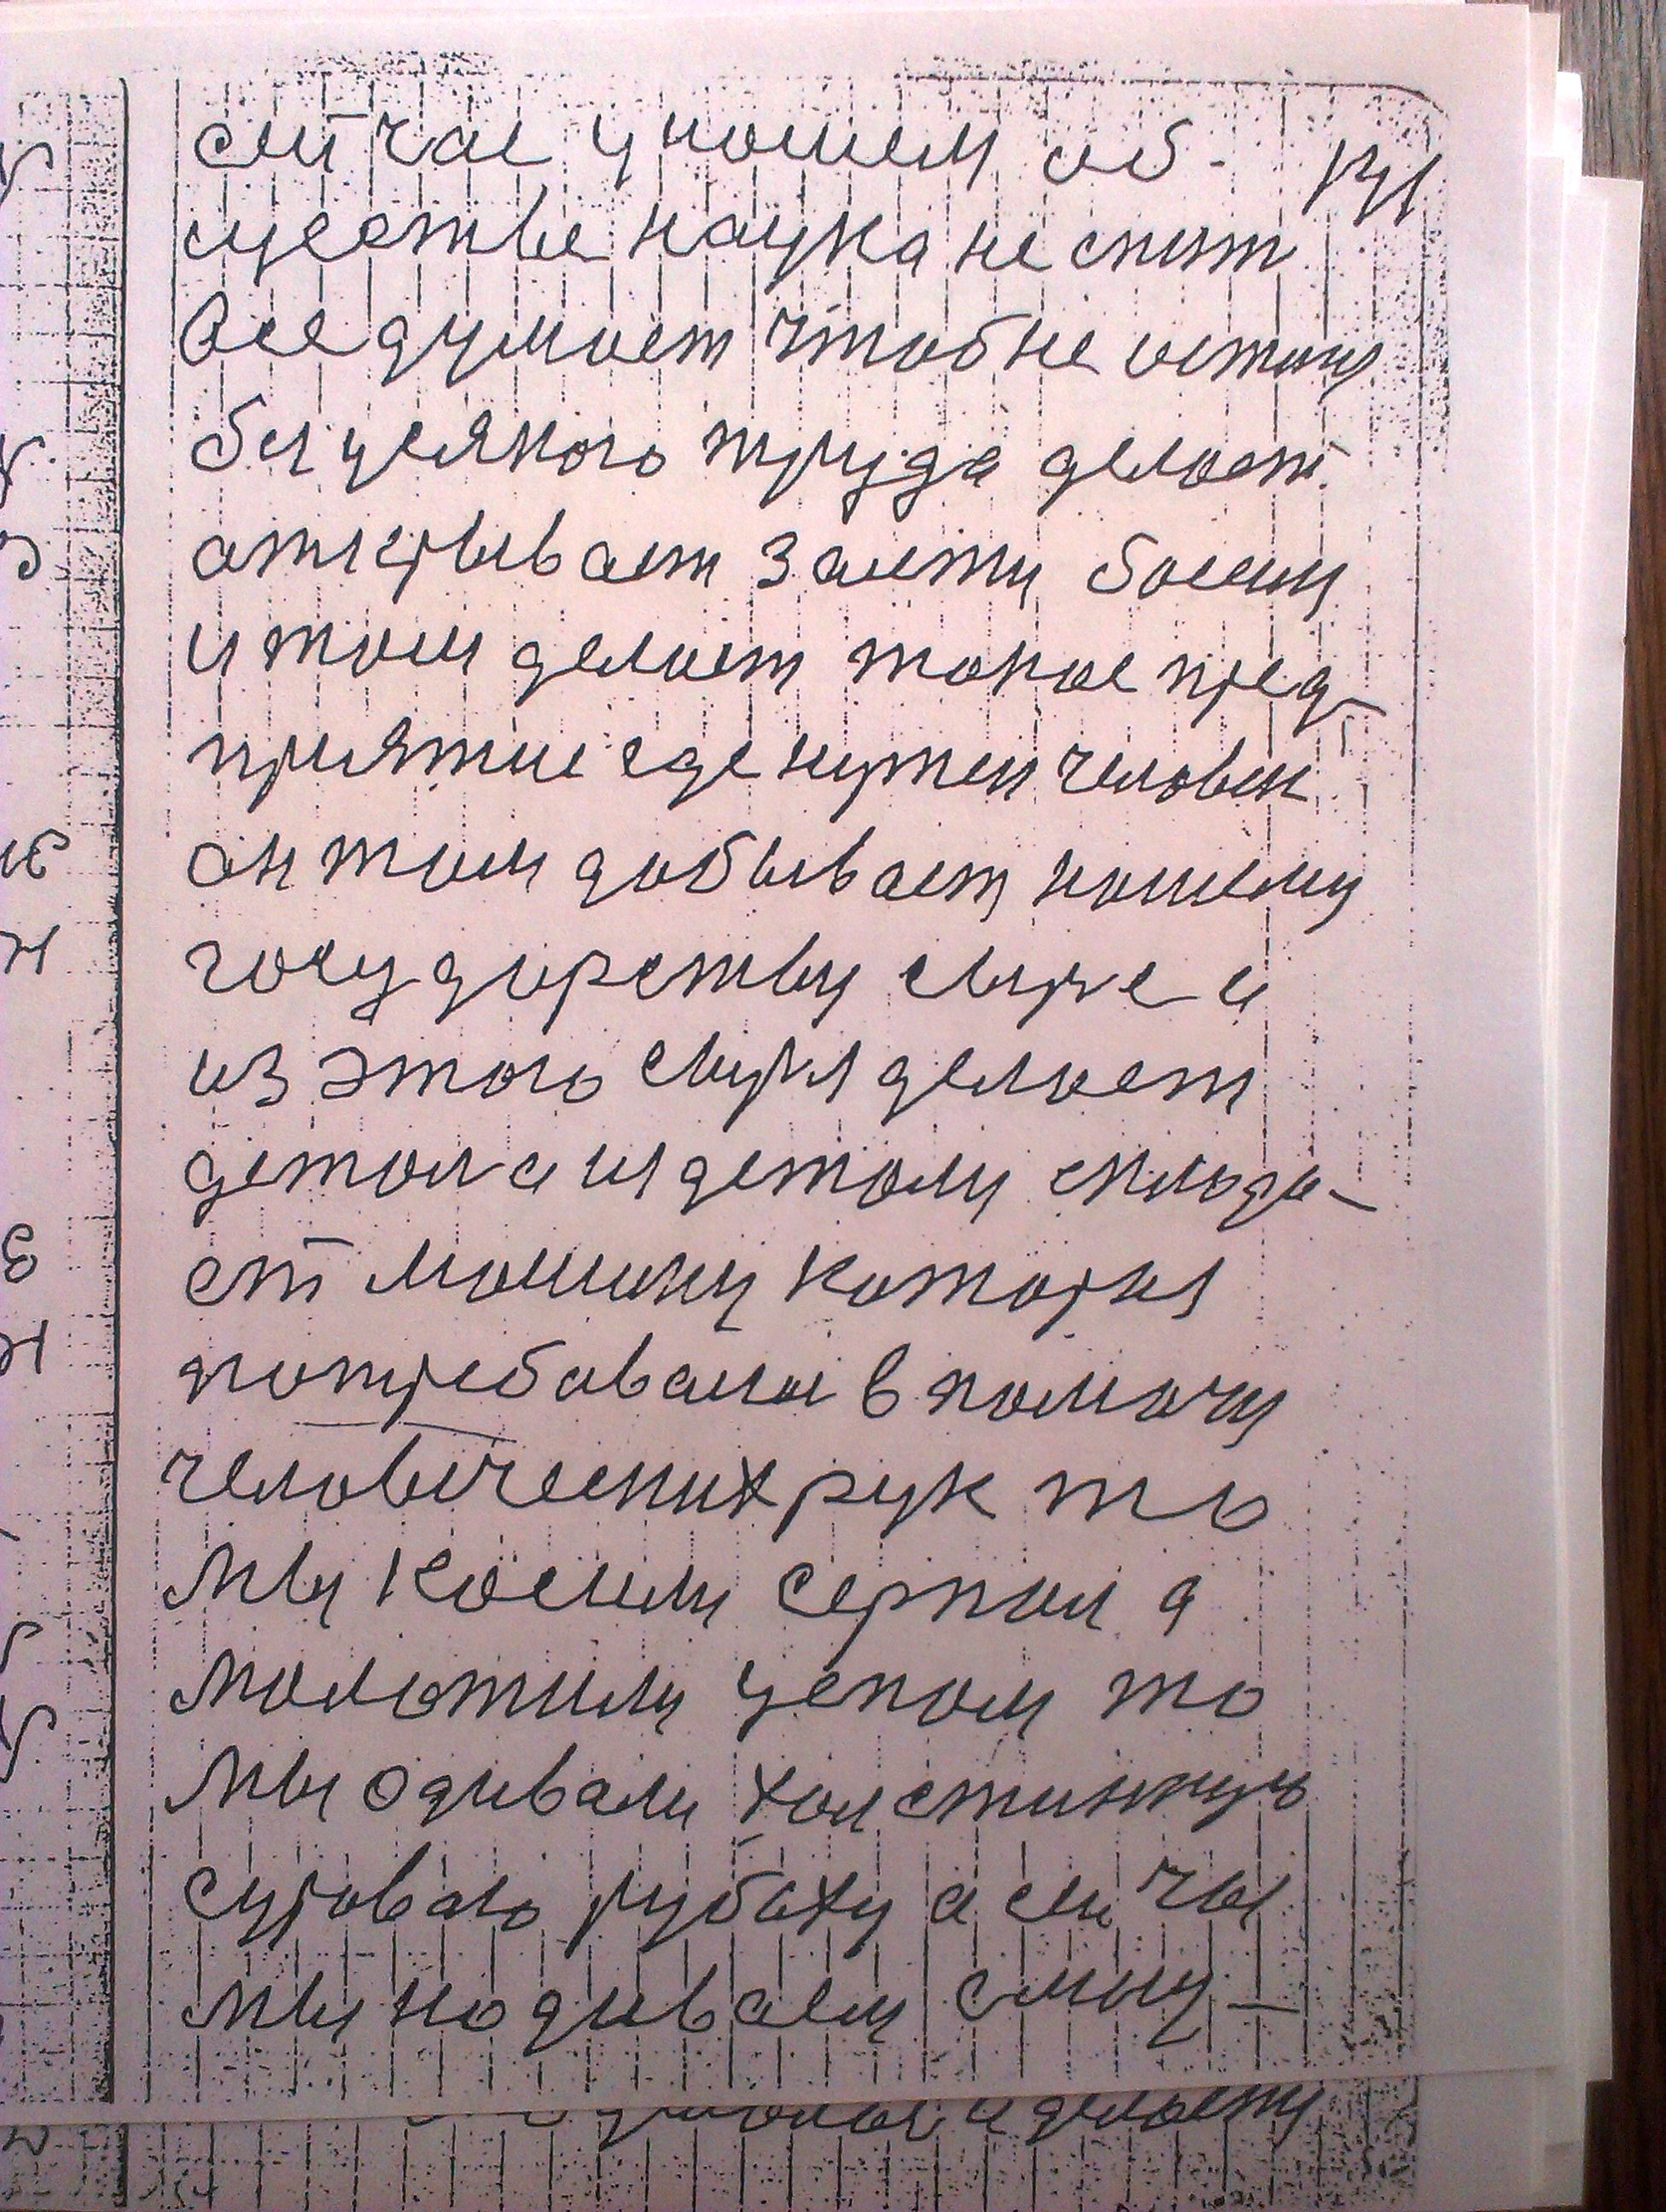 сейчас у нашем об-
ществе наука не спит
все думает чтоб не
бы усякого труда делает
открывает
и там делает такое пред-
приятие где нужен человек
он там добывает нашему
государству сыре и
из этого сыря делает
детали и из детали склада-
ет машину которая
потребовали в помочи
человических рук то
мы косили серпом а
молотили цепом то
мы одивали холстинную
суровою рубаху а сичас
мы надиваем